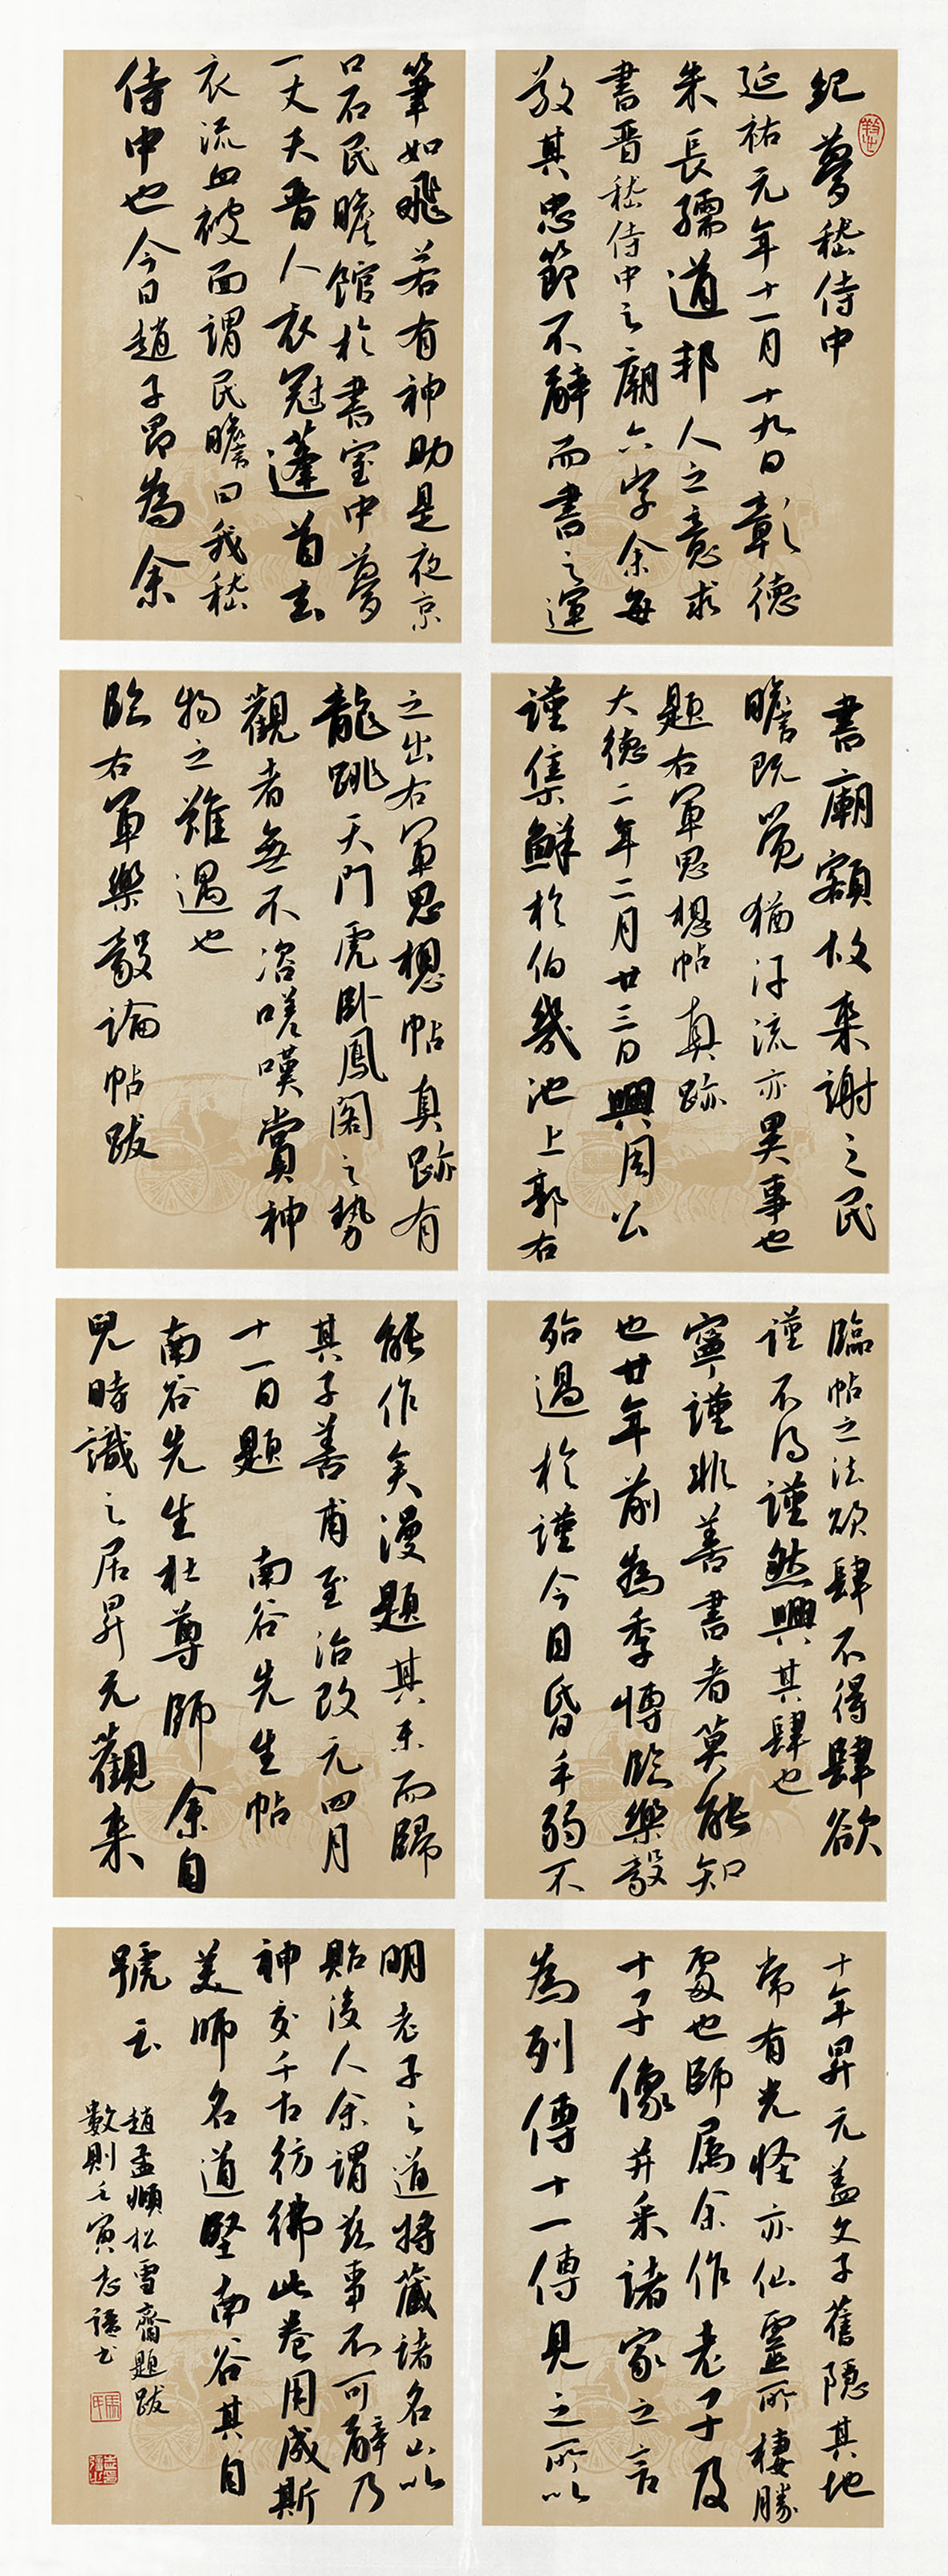 紀夢嵇侍中
延祐元年十一月十九日彰德
朱長孺道邦人之意求
書晉嵇侍中之廟六字余每
敬其忠節不辭而書之運
筆如飛若有神助是夜京
口石民瞻館於書室中夢
一丈夫晉人衣冠蓬首玄
衣流血被面謂民瞻曰我嵇
侍中也今日趙子昂為余
書廟額故來謝之民
瞻既覺猶汗流亦異事也
題右軍思想帖真跡
大德二年二月廿三日興周公
謹集鮮於伯幾池上郭右
之出右軍思想帖真跡有
龍跳天門虎臥鳳閣之勢
觀者無不咨嗟嘆賞神
物之難遇也
臨右軍樂毅論帖跋
臨帖之法欲肆不得肆欲
謹不得謹然興其肆也
寧謹非善書者莫能知
也廿年前為季博臨樂毅
殆過於謹今目昏手弱不
能作矣漫題其末而歸
其子善甫至治改元四月
十一日題 南谷先生帖
南谷先生杜尊師余自
兒時識之居昇元觀來
十年昇元蓋文子舊隱其地
常有光怪亦仙靈所棲勝
處也師屬余作老子及
十子像并采諸家之言
為列傳十一傳見之所以
明老子之道將藏諸名山以
貽後人余謂茲事不可辭乃
神交千古彷彿此卷用成斯
美師名道堅南谷其自
號云
趙孟頫松雪齋題跋
數則壬寅志謹書